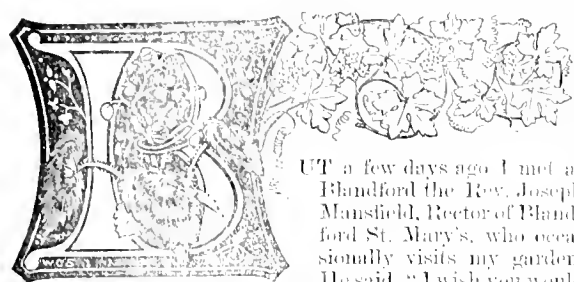 BUT a few days ago I met at
Blandford the Rev. Joseph
Mansfield, Rector of Bland-
ford St. Mary's, who occa-
sionally visits my garden.
He said, "I wish you would